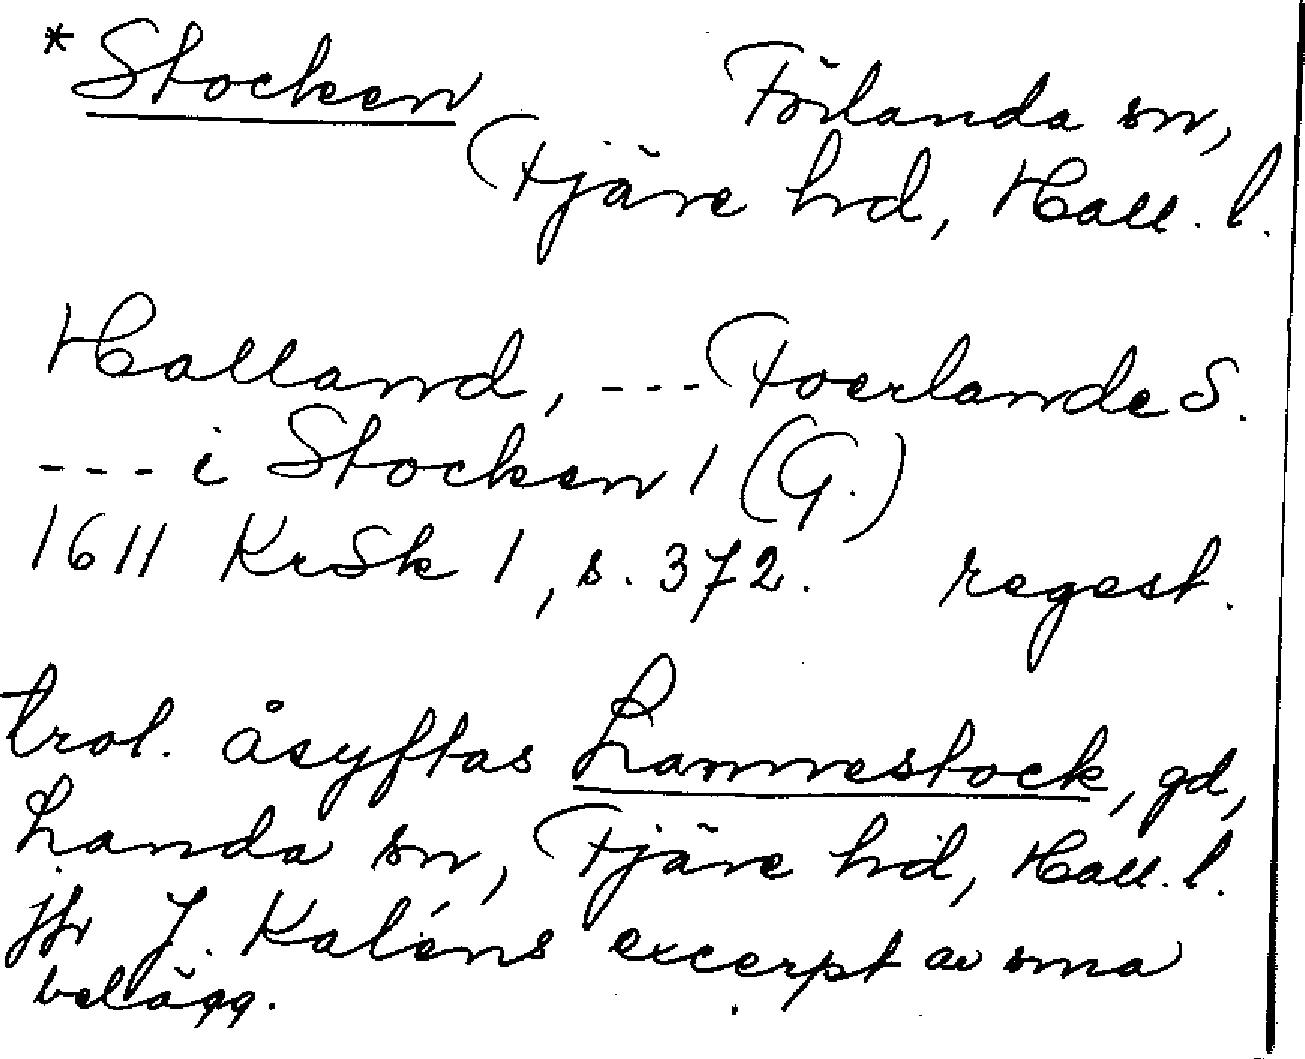 *Stocken Förlanda sn,
Fjäre hd, Hall. l.
Halland, --- Foerlande S.
--- i Stocken 1 (G.)
1611 KrSk 1, s. 372. regest.
trol. åsyftas Lammestock, gd,
Landa sn, Fjäre hd, Hall. l.
Jfr J. Kaléns excerpt av sma
belägg.